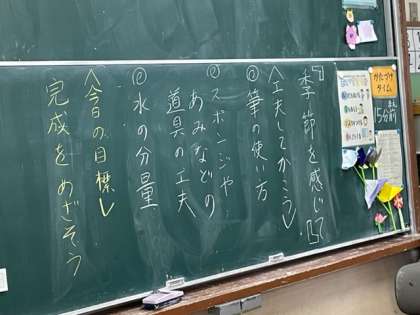 『季節を感じて』
〈工夫してかこう〉
◎筆の使い方
◎スポンジや
あみなどの
道具の工夫
◎水の分量
〈今日の目標〉
完成をめざそう
かたづけ
タイム
15分前